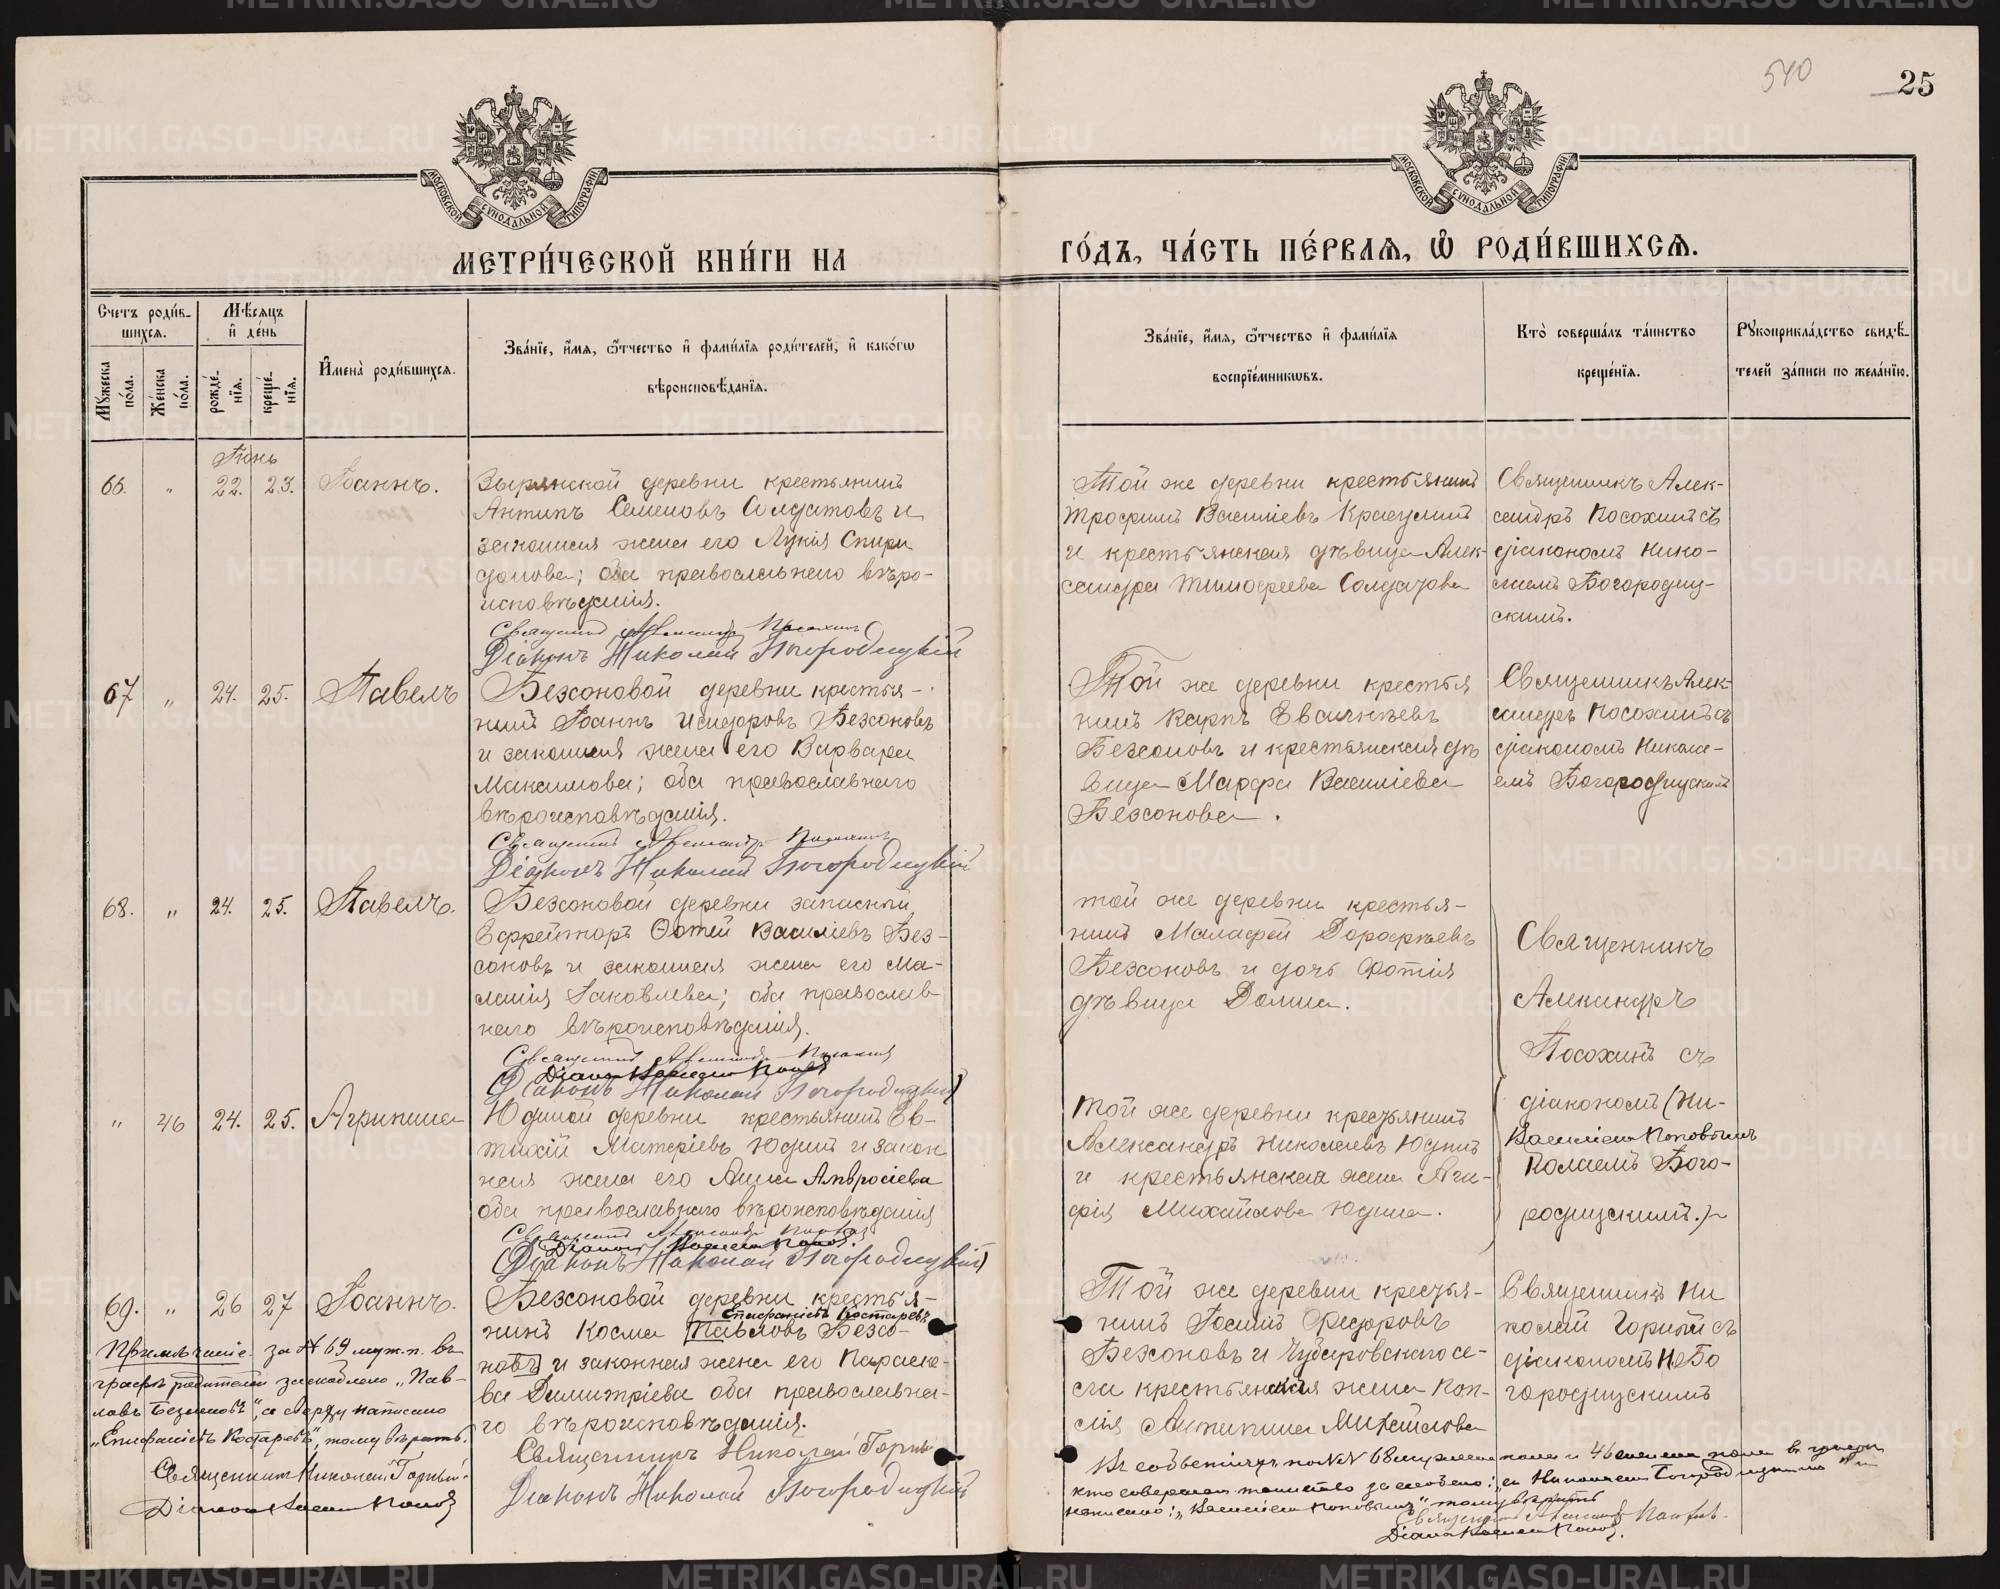 540
25
МОСКОВСКОЙ СѴНОДАЛЬНОЙ ТИПОГРАФІИ
МОСКОВСКОЙ СѴНОДАЛЬНОЙ ТИПОГРАФІИ
МЕТРИ́ЧЕСКОЙ КНИ́ГИ НА
ГО́ДЪ, ЧА́СТЬ ПЕ́РВАЯ, Ѡ҆ РОДИ́ВШИХСѦ.
Счетъ роди́в-
шихся.
Мѣ́сяцъ
и҆ де́нь
Мꙋжеска по́ла.
Же́нска по́ла.
рожде́-
нїѧ.
креще́-
нїѧ.
И҆мена̀ роди́вшихсѧ.
Зва́нїе, и҆́мя, ѻ҆́тчество и҆ фами́лїя роди́телей, и҆ како́гѡ
вѣроисповѣ́данїя.
Зва́нїе, и҆́мя, ѻ҆́тчество и҆ фами́лїя
воспрїе́мникѡвъ.
Кто̀ соверша́лъ та́инство
креще́нїя.
Рꙋкоприкла́дство свидѣ́-
телей за́писи по жела́нїю.
Іюнь
66. " 22. 23. Іоаннъ.
Зырянской деревни крестьянинъ
Антипъ Семеновъ Солдатовъ и
законная жена его Лукія Спири
донова; оба православнаго вѣро-
исповѣданія.
Священникъ Александръ Посохинъ
Діаконъ Николай Богородицкій
Той же деревни крестьянинъ
Трофимъ Василіевъ
и крестьянская дѣвица Алек-
сандра Тимофеева Солдатова
Священникъ Алек-
сандръ Посохинъ съ
діакономъ Нико-
лаемъ Богородиц-
скимъ.
67 " 24. 25. Павелъ
Безсоновой деревни крестья-
нинъ Іоаннъ Исидоровъ Безсоновъ
и законная жена его Варвара
Максимова; оба православнаго
вѣроисповѣданія.
Священникъ Александръ Посохинъ
Діаконъ Николай Богородицкій
Той же деревни крестья
нинъ Карпъ
Безсоновъ и крестьянская дѣ
вица Марфа Василіева
Безсонова.
Священникъ Алек-
сандръ Посохинъ съ
діакономъ Никола-
емъ Богородицскимъ
68. " 24. 25. Павелъ.
Безсоновой деревни запасный
Ефрейторъ Фотій Василіевъ Без-
соновъ и законная жена его Ма-
ланія Іаковлева; оба православ-
наго вѣроисповѣданія.
Священникъ Александръ Посохинъ
Діаконъ Василій Поповъ
Діаконъ Николай Богородицкій
той же деревни крестья-
нинъ Малафей Дорофѣевъ
Безсоновъ и дочь Фотія
дѣвица Домна.
Священникъ
Александръ
Посохинъ съ
діакономъ (Ни-
Василіемъ Поповымъ
колаемъ Бого-
родицскимъ.)
" 46 24. 25. Агрипина
Юдиной деревни крестьянинъ Ев-
тихій Матеріевъ Юдинъ и закон
ная жена его Анна Амвросіева
оба православнаго вѣроисповѣданія
Священникъ Александръ Посохинъ
Діаконъ Василій Поповъ.
Діаконъ Николай Богородицкій
той же деревни крестьянинъ
Александръ Николаевъ Юдинъ
и крестьянская жена Ага-
фія Михайлова Юдина.
69. " 26 27 Іоаннъ.
Безсоновой деревни крестья-
Епифаніевъ Костаревъ
нинъ Косма Павловъ Безсо-
новъ и законная жена его Параске-
ва Димитріева оба православна-
го вѣроисповѣданія.
Священникъ Николай Горный
Діаконъ Николай Богородицкій
Той же деревни крестья-
нинъ Ѳедоровъ
Безсоновъ и Чубаровскаго се-
ла крестьянская жена
Антипина Михайлова
Священникъ Ни
колай Горный съ
діакономъ Н. Бо
городицскимъ
Примѣчаніе: за № 69 муж. п. въ
графѣ родителей зачеркнуто „Пав-
ловъ Безсоновъ", а сверху написано
„Епифаніевъ Костаревъ", тому вѣрить.
Священникъ Николай Горный.
Діаконъ Василій Поповъ
Въ №№ 68 мужеска пола и 46 женска пола въ графѣ
кто совершалъ таинство : „съ Николаемъ Богородицкимъ" и
написано: „Василіемъ Поповымъ" тому вѣрить
Священникъ Александръ
Діаконъ Василій Поповъ.
METRIKI.GASO-URAL.RU